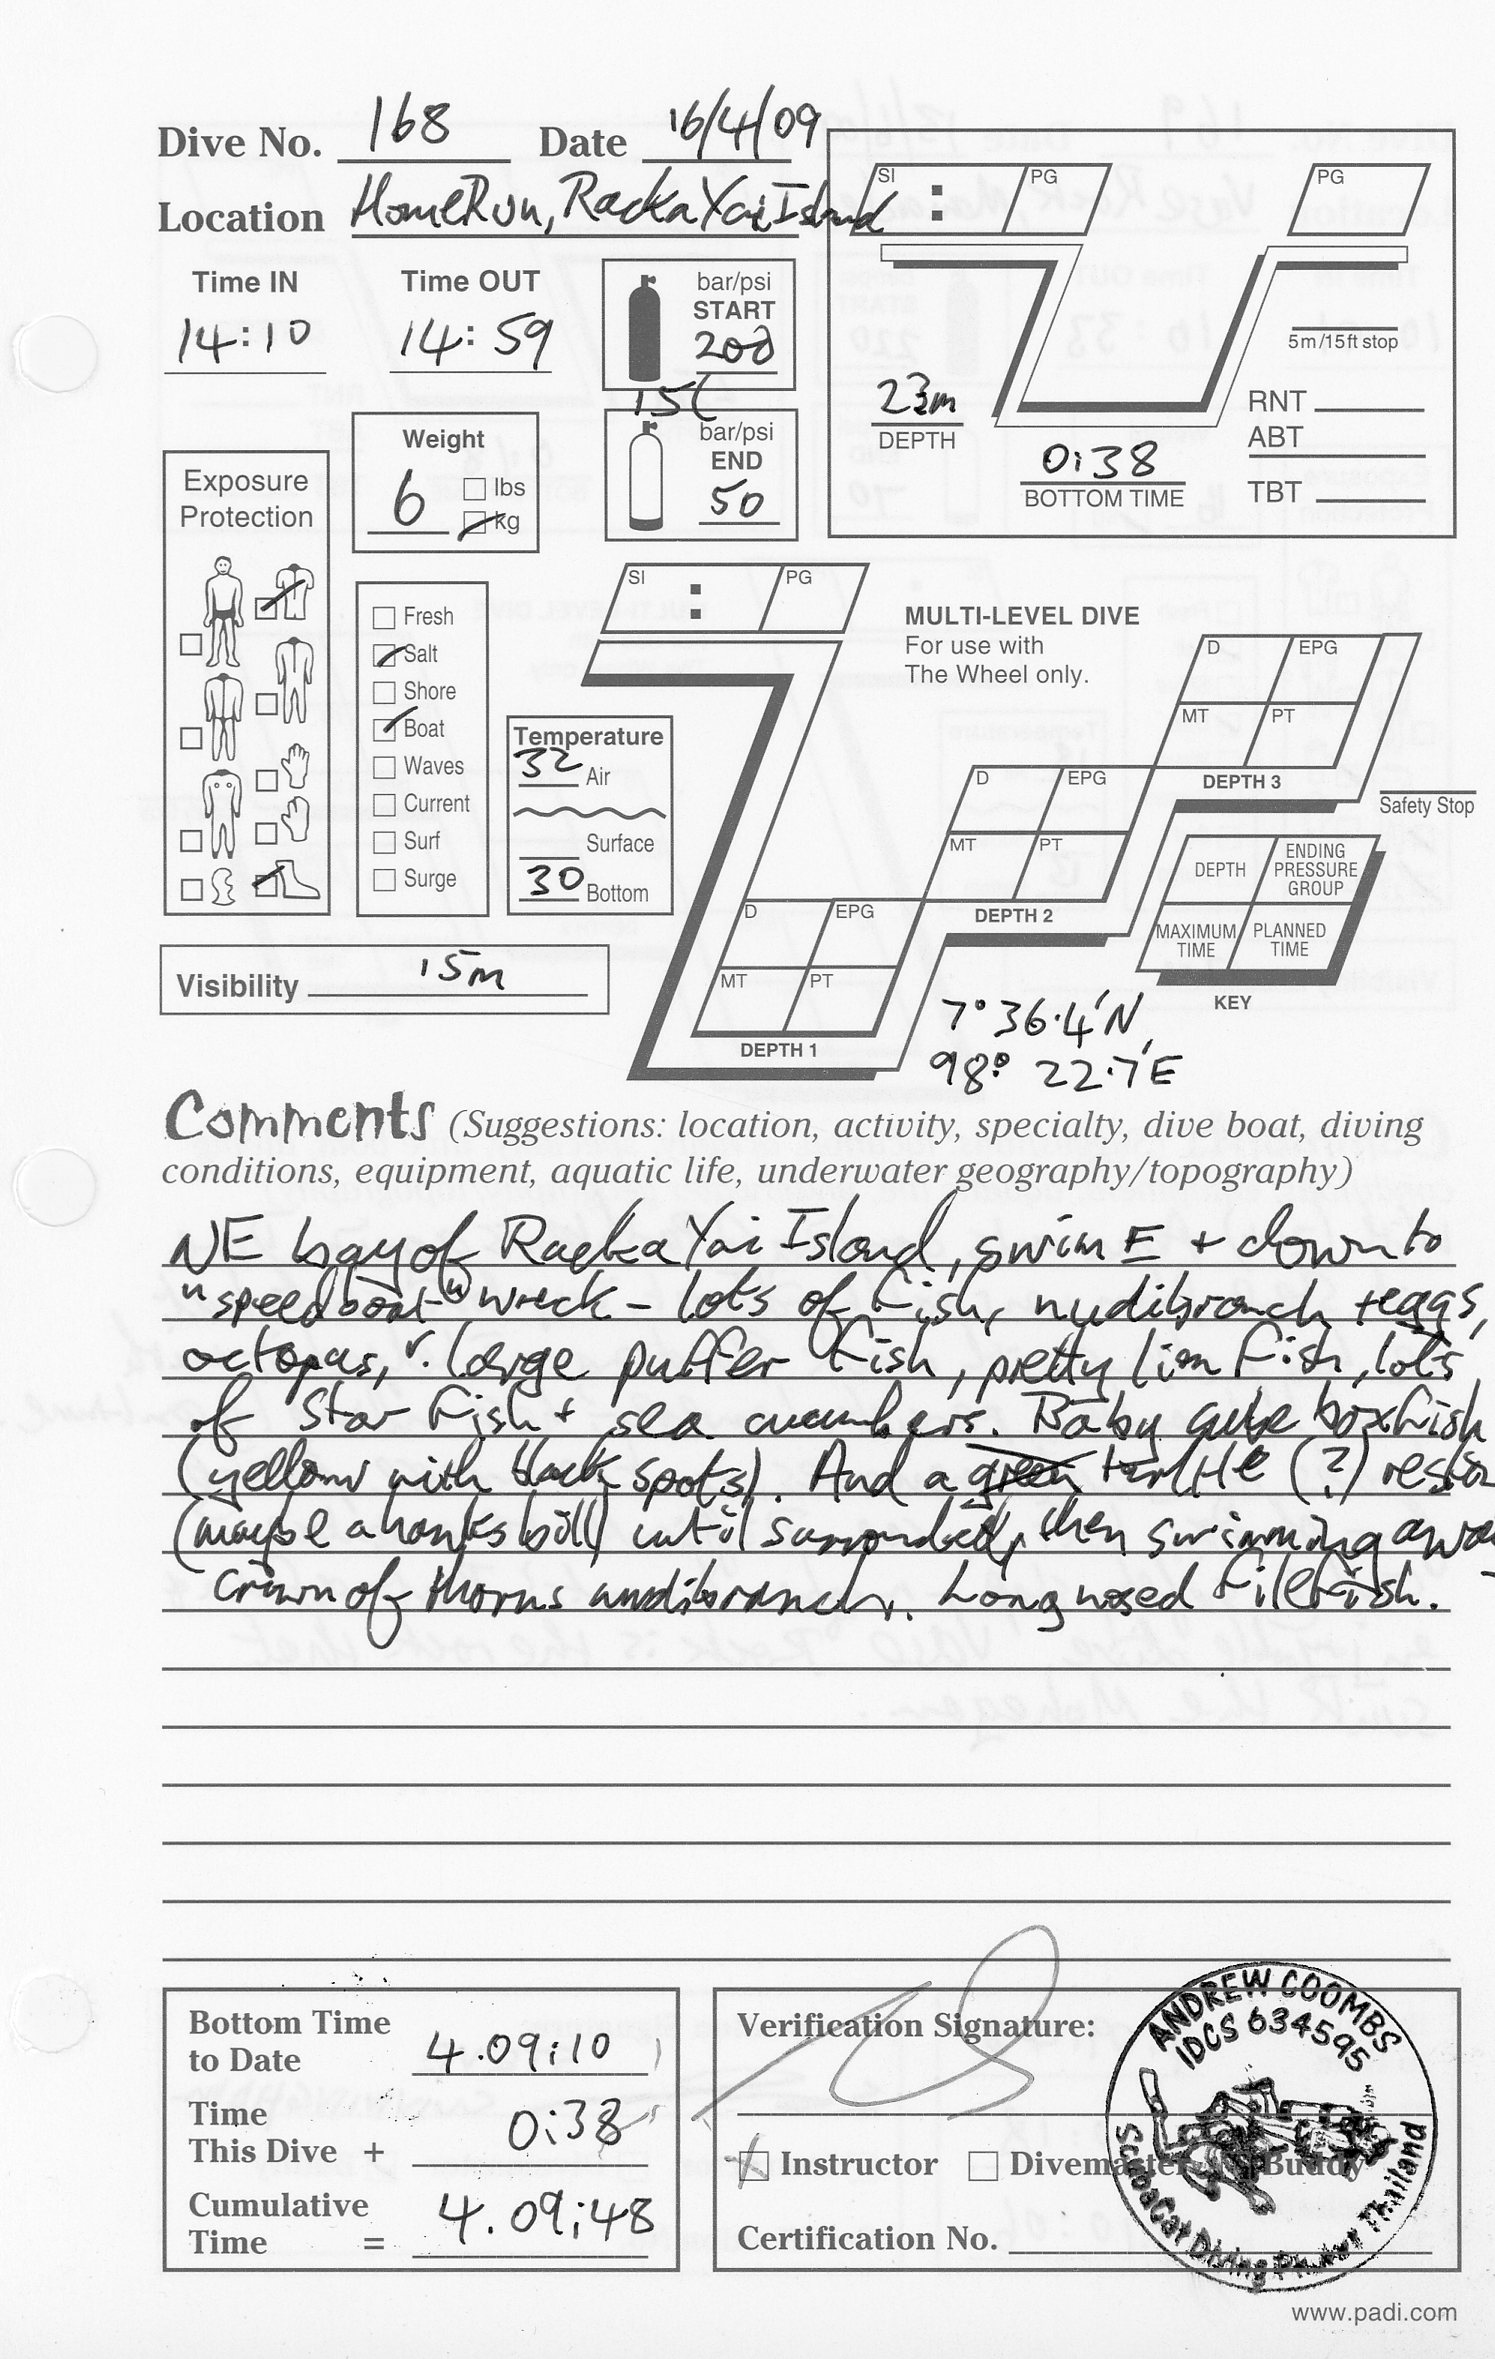 Dive No. 168 Date 16/4/09
Location HomeRun, Racka Yai Island
Time IN Time OUT
14:10 14:59
bar/psi
START
200
150
bar/psi
END
50
Weight
6 lbs
kg
Exposure
Protection
Fresh
Salt
Shore
Boat
Waves
Current
Surf
Surge
Temperature
32 Air
Surface
30 Bottom
Visibility 15m
SI : PG
PG
5m/15ft stop
23m
DEPTH
0:38
BOTTOM TIME
RNT
ABT
TBT
SI : PG
MULTI-LEVEL DIVE
For use with
The Wheel only.
D EPG
MT PT
DEPTH 3
Safety Stop
D EPG
MT PT
DEPTH 2
D EPG
MT PT
DEPTH 1
DEPTH ENDING PRESSURE GROUP
MAXIMUM TIME PLANNED TIME
KEY
7° 36.4'N,
98° 22.7'E
Comments (Suggestions: location, activity, specialty, dive boat, diving
conditions, equipment, aquatic life, underwater geography/topography)
NE bay of Racka Yai Island, swim E + down to
"speedboat" wreck - lots of fish, nudibranch + eggs,
octopus, v. large puffer fish, pretty lion fish, lots
of Star fish + sea cucumbers. Baby cube boxfish
(yellow with black spots). And a green turtle (?)
(maybe a hawksbill) until surrounded, then swimming
Crown of thorns nudibranch. Long nosed filefish.
Bottom Time
to Date 4.09:10
Time
This Dive + 0:38
Cumulative
Time = 4.09:48
Verification Signature:
Instructor Divemaster Buddy
Certification No.
ANDREW COOMBS
IDCS 634595
ScubaCat Diving Phuket Thailand
www.padi.com